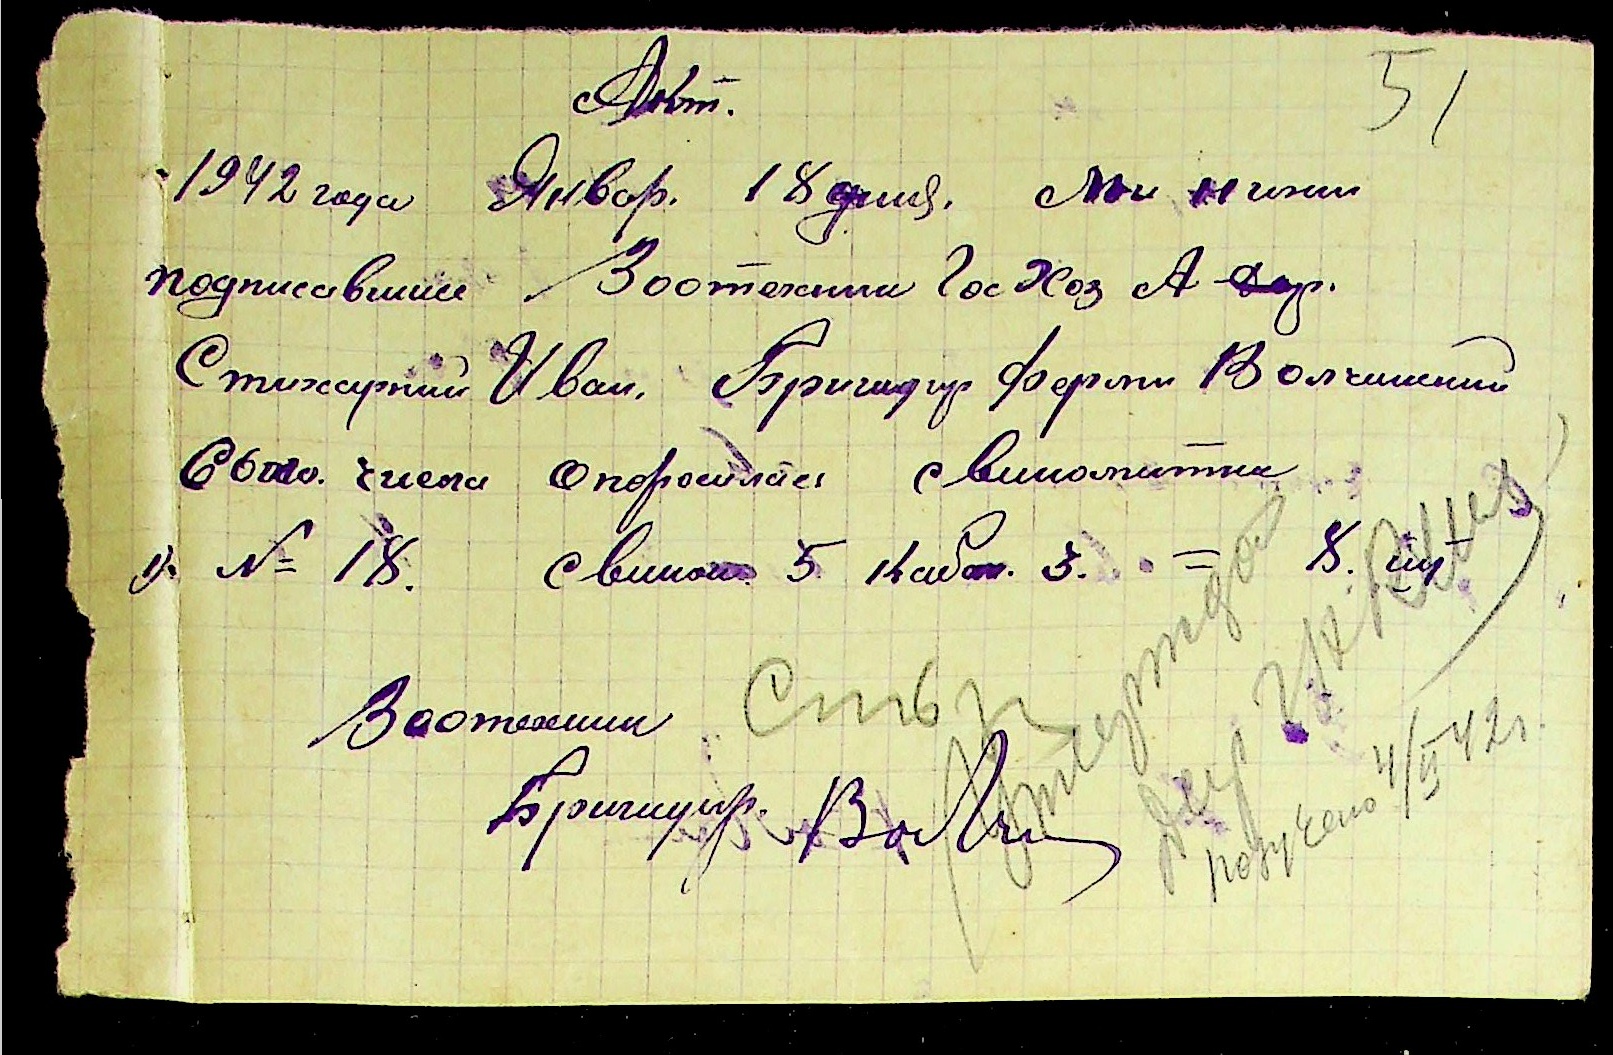 51
Акт.
1942 года Январ. 18 дня. Мы ниже
подписавшие Зоотехник ГосХоз А
Стихарний Иван. Бригадир фермы Волчинский
Сего. числа опоросилась свиноматка
1). № 18. свинок 5 кабан. 3. = 8. шт
Зоотехник
Бригадир. Волчи
Утверждаю
получено 4/II 42г.